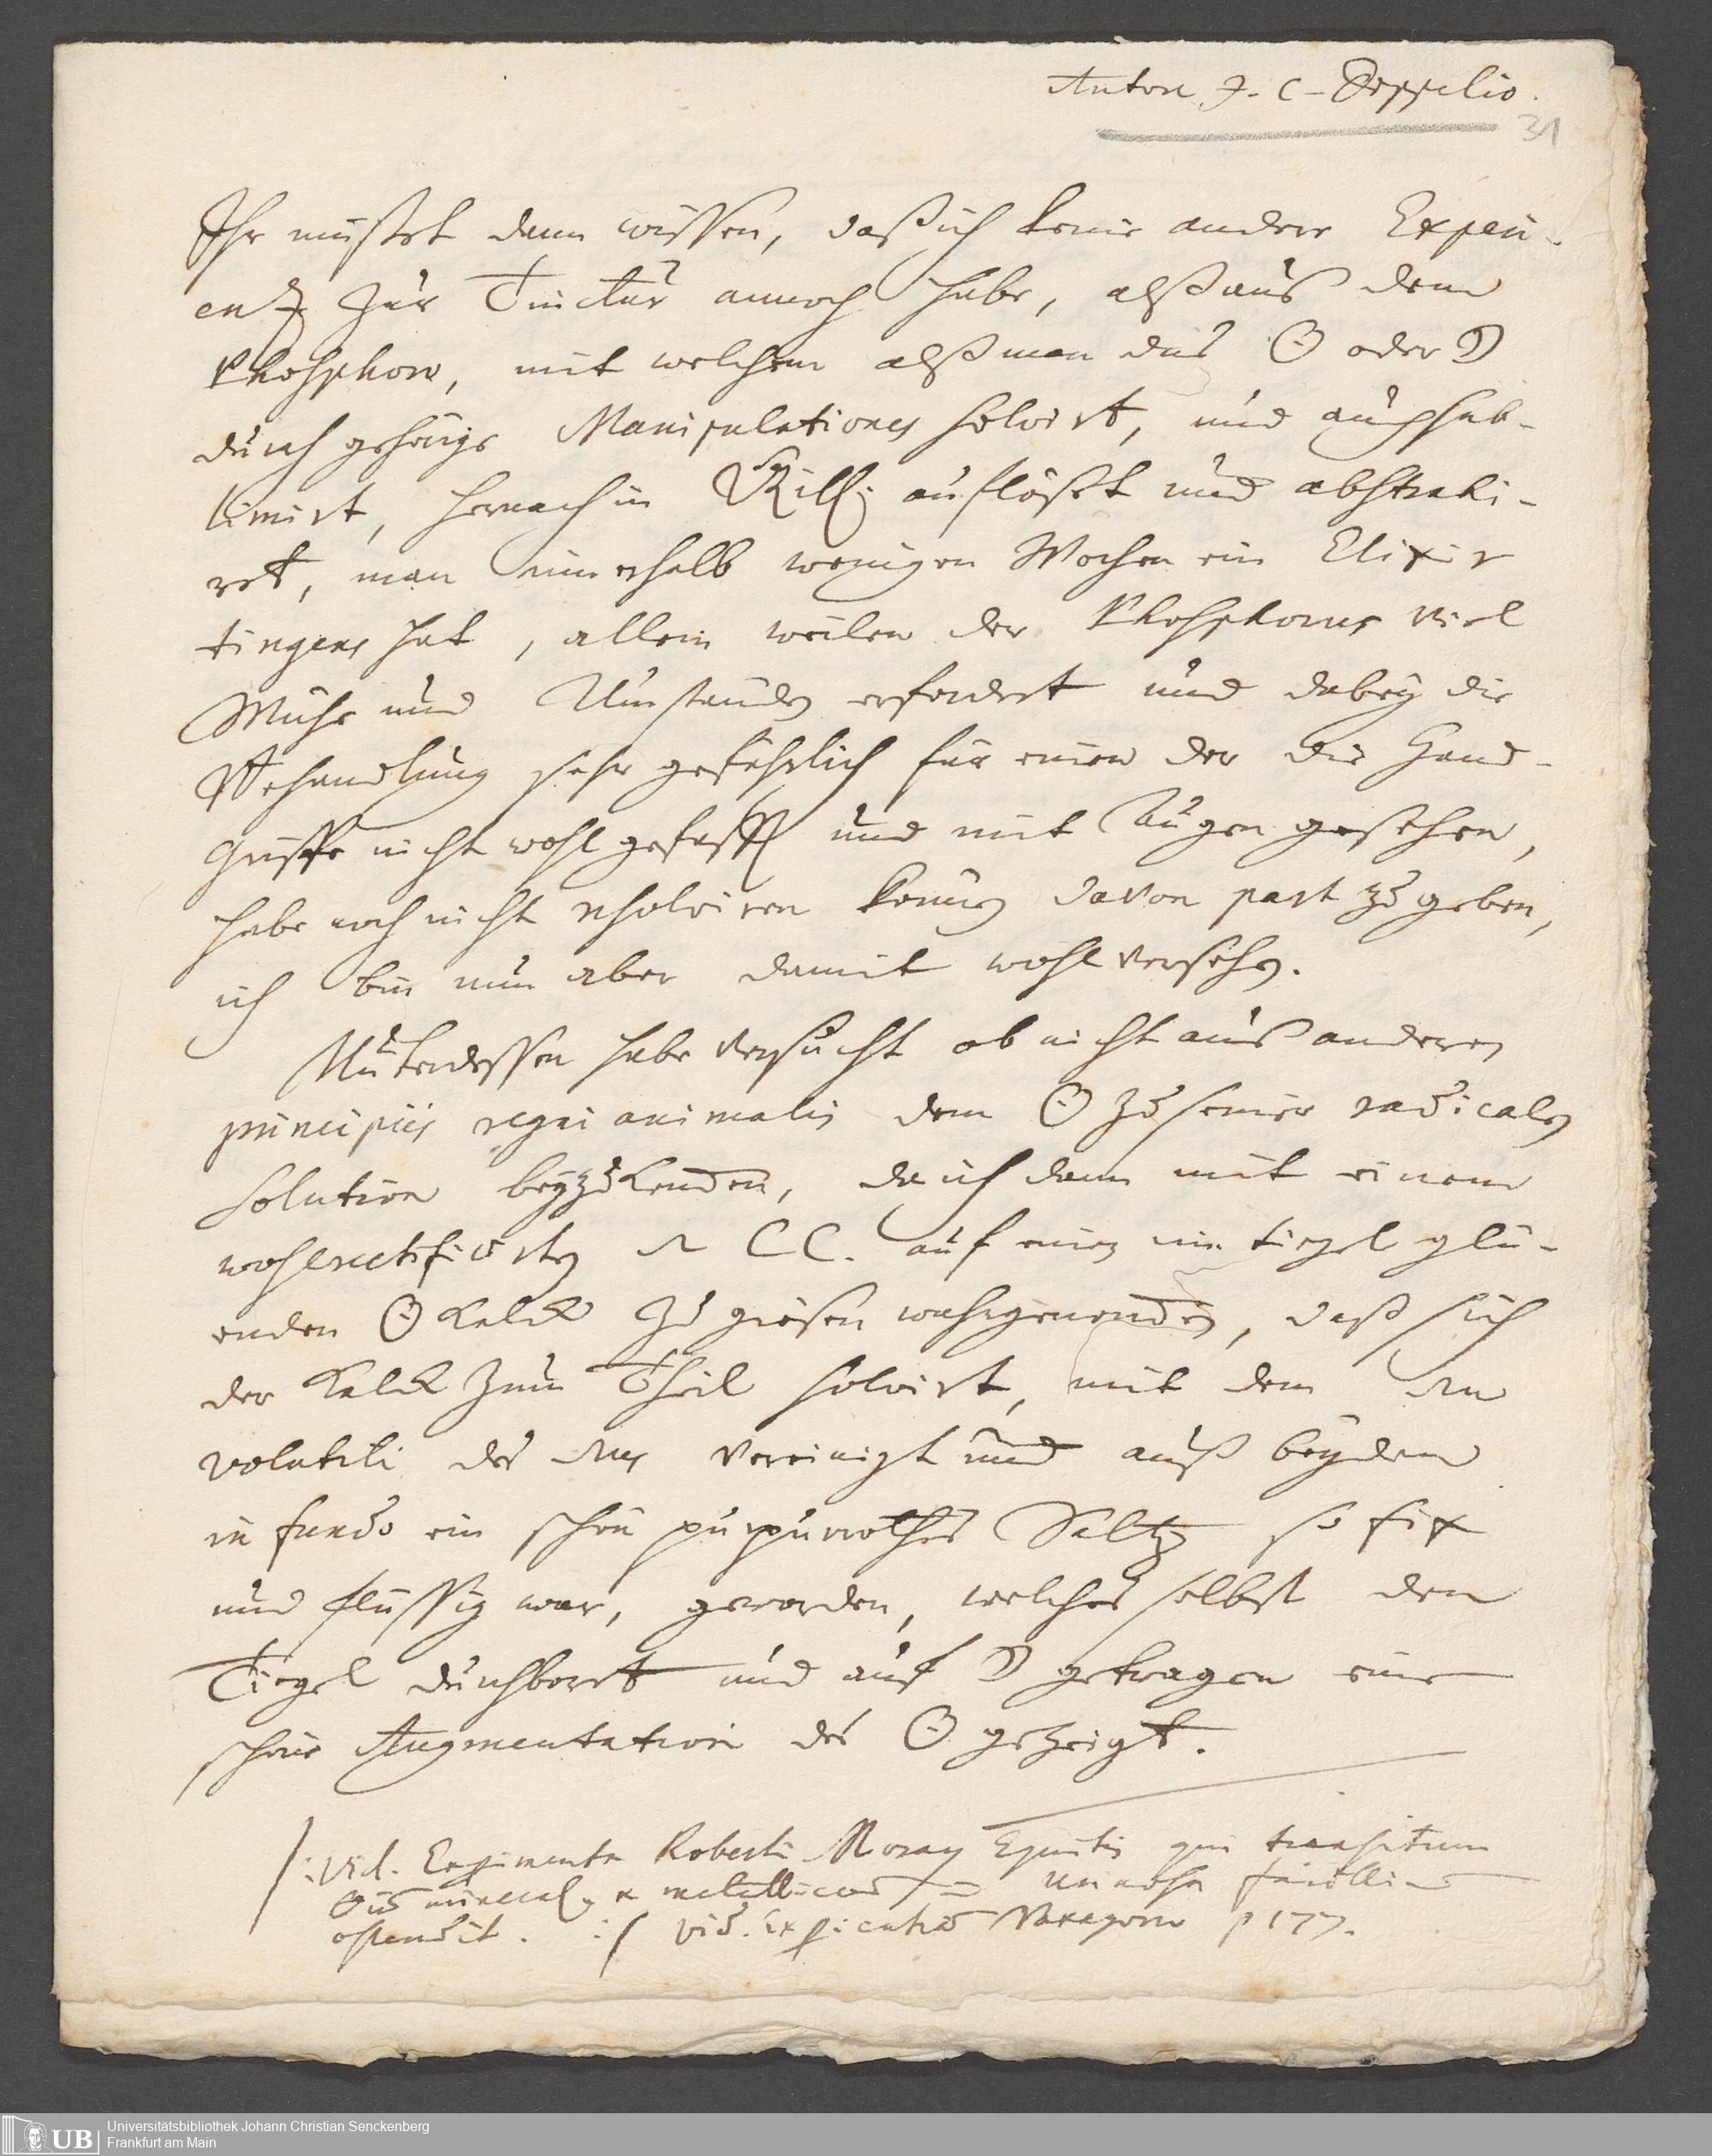 Autore J. C. Dippelio.
31
Ihr müßet dann wissen, daß ich keine andere Experi-
entz zur Tinctur annoch habe, alß auß dem
Phosphoro, mit welchem alß man das ☉ oder ☽
durch gehörige Manipulationes solvirt, und auch sub-
limirt, hernach in auflößet und abstrahi-
ret, man innerhalb wenigen Wochen ein Elixir
tingens hat, allein weilen der Phosphorus viel
Mühe und Umständen erfordert und dabey die
Behandlung sehr gefährlich für einen der die Hand-
Griffe nicht wohl gefasst und mit Augen gesehen,
habe noch nicht resolviren können davon part zu geben,
ich bin nun aber damit wohl versehen.
Unterdessen habe versucht ob nicht aus anderen
principiis regni animalis dem ☉ zu seiner radicalen
solution beyzukommen, da ich dann mit einem
wohlrectificirten CC. auf einen im tiegel glü-
enden ☉ Kalck zu giesen wahrgenommen, daß sich
der Kalck zum Theil solvirt, mit dem
volatili des vereinigt und auß beydem
in fundo ein schön purpurrothes Saltz so fix
und flüssig war, geworden, welches selbst den
Tiegel durchbort und auf ☽ getragen eine
schöne Augmentation des ☉ gezeigt.
/: Vid. Experimenta Roberti Moray Equitis qui transitum
& metallicum in
ostendit. :/ vid. p 177.
Universitätsbibliothek Johann Christian Senckenberg
UB Frankfurt am Main